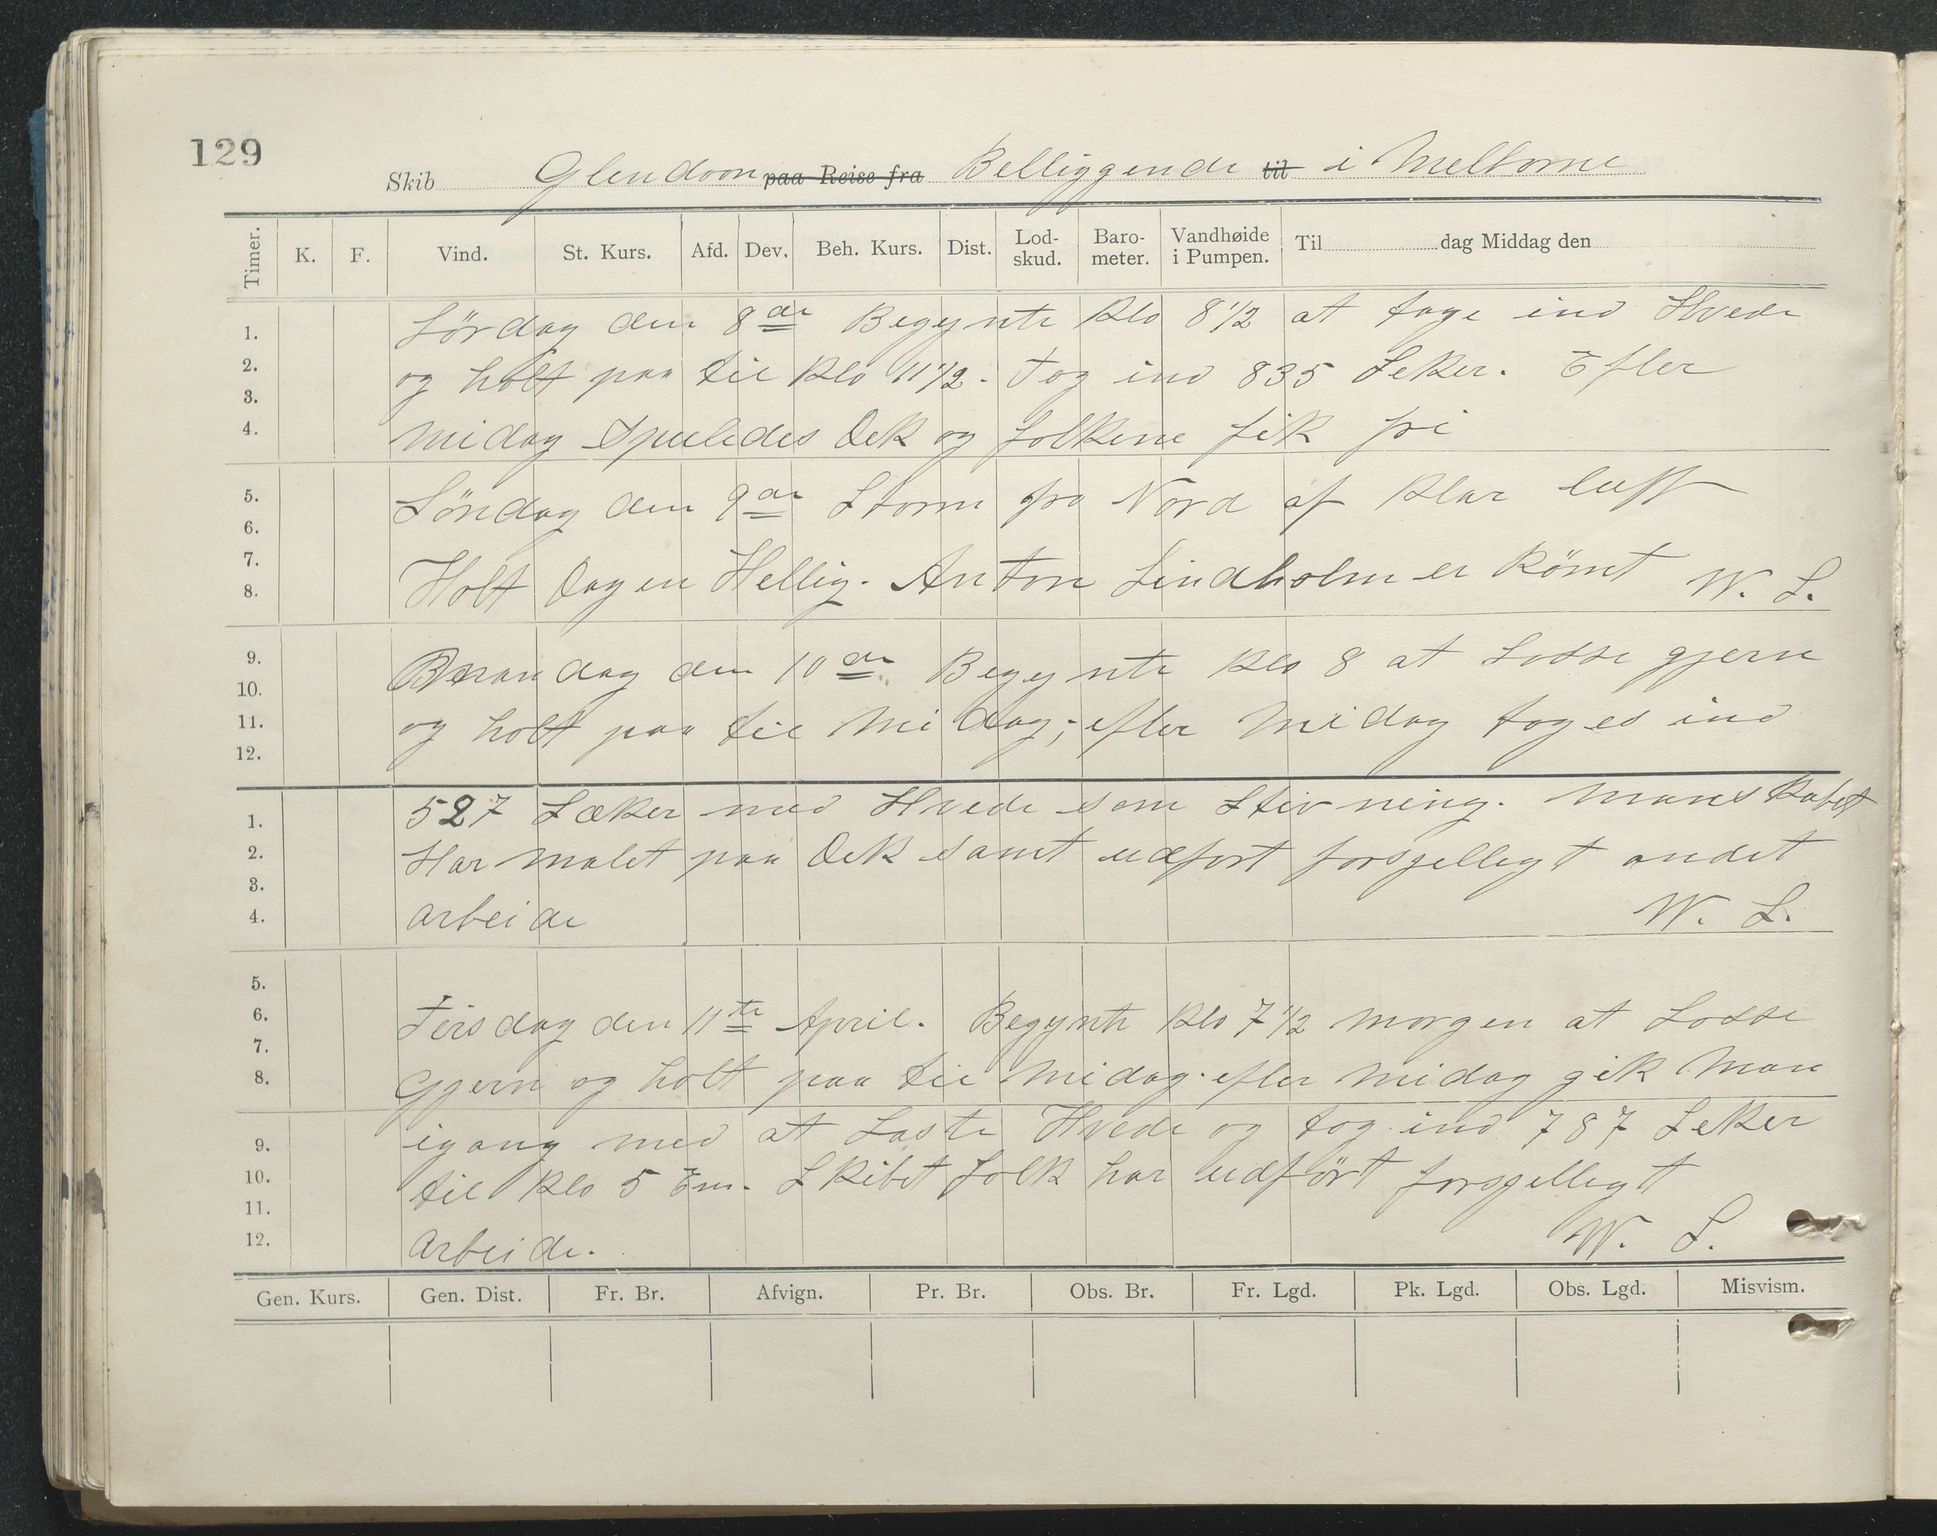 129
Skib Glendoon paa Reise fra Belliggende til i Melborne
Timer. K. F. Vind. St. Kurs. Afd. Dev. Beh. Kurs. Dist. Lod-skud. Baro-meter. Vandhøide i Pumpen. Til dag Middag den
1. Lørdag den 8de Begynte Klo 8 1/2 at tage ind Hvede
2. og holt paa til Klo 11 1/2. Tog ind 835 Seker. Efter
3.
4. midag Spuledes Dek og folkene fik fri
5. Söndag den 9de Storm fra Nord af klar luft
6.
7. Holt Dagen Hellig. Anton Lindholm er Römt W. L.
8.
9. Mandag den 10de Begynte Klo 8 at Losse gjern
10.
11. og holt paa til Midag; efter Midag toges ind
12.
1. 527 Sæker med Hvede som Stivning. Manskabet
2. Har malet paa Dek samt udfort forsjelligt andet
3.
4. arbeide W. L.
5.
6. Tirsdag den 11te April. Begynte Klo 7 1/2 morgen at Losse
7.
8. Gjern og holt paa til Midag. efter midag gik Man
9. igang med at Laste Hvede og tog ind 787 Seker
10. til Klo 5 Em. Skibet folk har udført forsjelligt
11.
12. Arbeide. W. L.
Gen. Kurs. Gen. Dist. Fr. Br. Afvign. Pr. Br. Obs. Br. Fr. Lgd. Pk. Lgd. Obs. Lgd. Misvism.